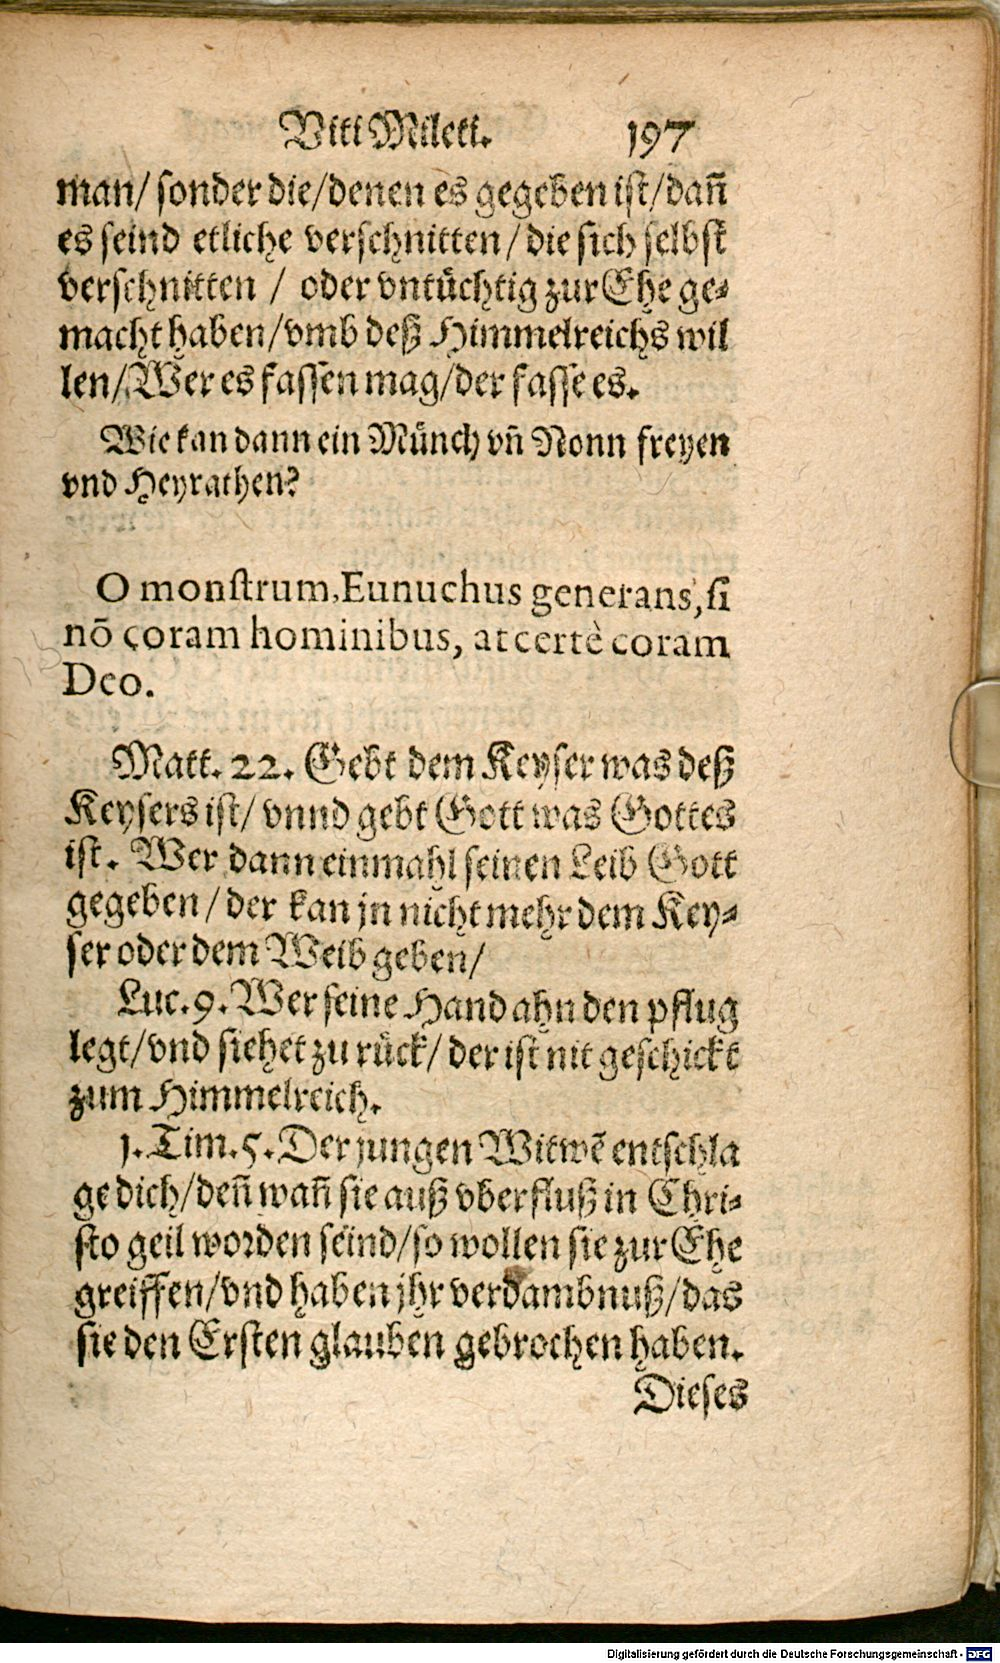 Viti Mileti. 197
man/ sonder die/denen es gegeben ist/dañ
es seind etliche verschnitten/die sich selbst
verschnitten / oder vntüchtig zur Ehe ge-
macht haben/vmb deß Himmelreichs wil
len/Wer es fassen mag/der fasse es.
Wie kan dann ein Münch vñ Nonn freyen
vnd Heyrathen?
O monstrum, Eunuchus generans, si
nõ coram hominibus, at certè coram
Deo.
Matt. 22. Gebt dem Keyser was deß
Keysers ist/ vnnd gebt Gott was Gottes
ist. Wer dann einmahl seinen Leib Gott
gegeben/der kan jn nicht mehr dem Key-
ser oder dem Weib geben/
Luc. 9. Wer seine Hand ahn den pflug
legt/vnd siehet zu rück/ der ist nit geschickt
zum Himmelreich.
1. Tim. 5. Der jungen Witwẽ entschla
ge dich/deñ wañ sie auß vberfluß in Chri-
sto geil worden seind/so wollen sie zur Ehe
greiffen/vnd haben jhr verdambnuß/das
sie den Ersten glauben gebrochen haben.
Dieses
Digitalisierung gefördert durch die Deutsche Forschungsgemeinschaft - DFG